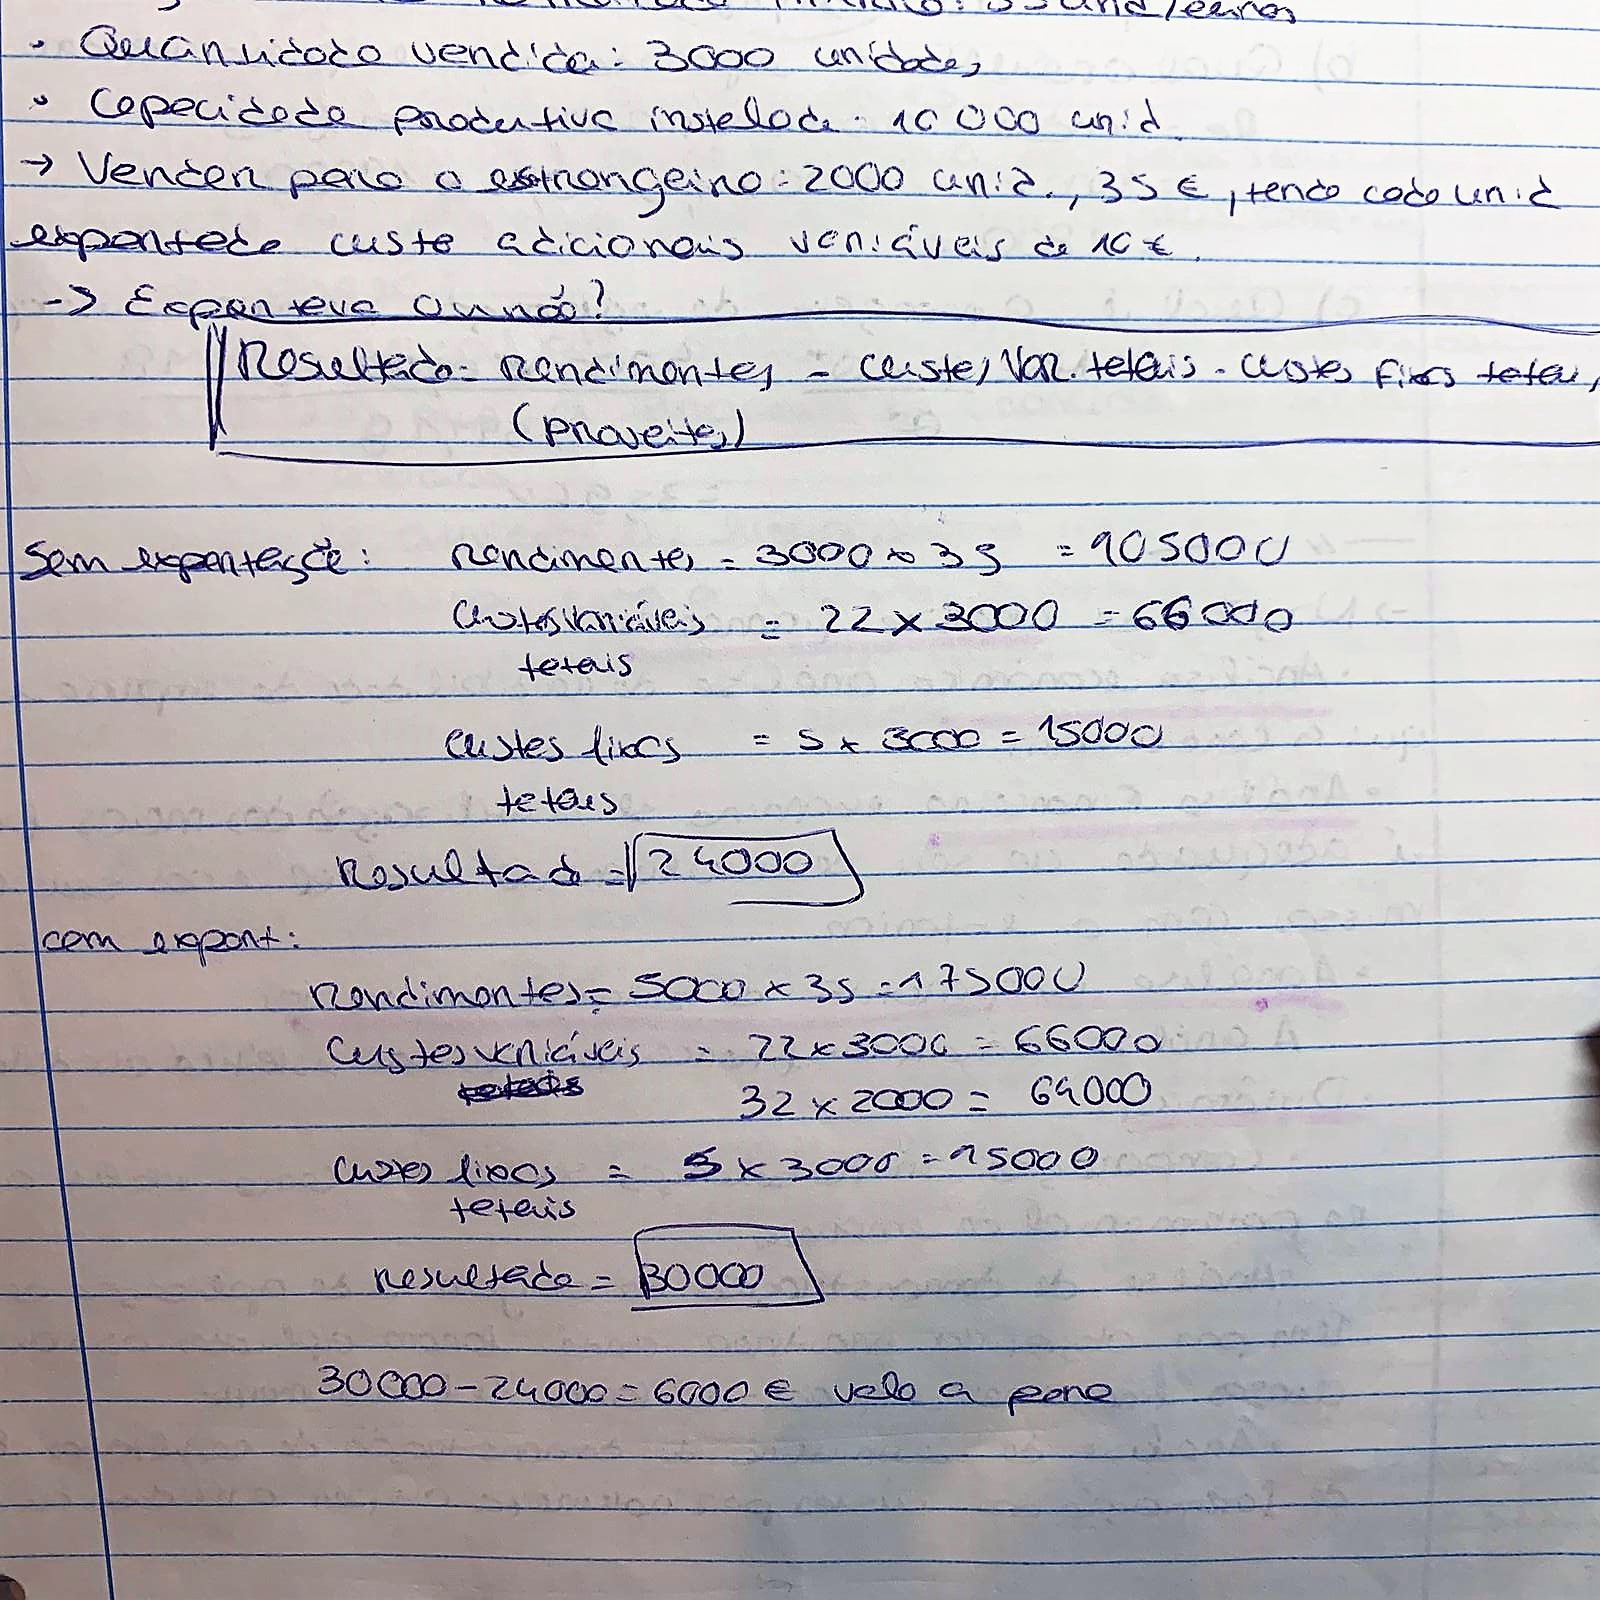 35 und/euros
• Quantidade vendida: 3000 unidades
• Capacidade produtiva instalada: 10 000 unid.
→ Vender para o estrangeiro: 2000 unid., 35 €, tendo cada unid
exportada custe adicionais variáveis de 10 €.
-> Exportava ou não?
Resultado = rendimentos - custos var. totais - custos fixos totais
(proveitos)
Sem exportação: rendimentos = 3000 x 35 = 105000
custos variáveis = 22 x 3000 = 66000
totais
custos fixos = 5 x 3000 = 15000
totais
Resultado = 24000
com export:
rendimentos = 5000 x 35 = 175000
custos variáveis = 22 x 3000 = 66000
32 x 2000 = 64000
custos fixos = 5 x 3000 = 15000
totais
resultado = 30000
30000 - 24000 = 6000 € vale a pena